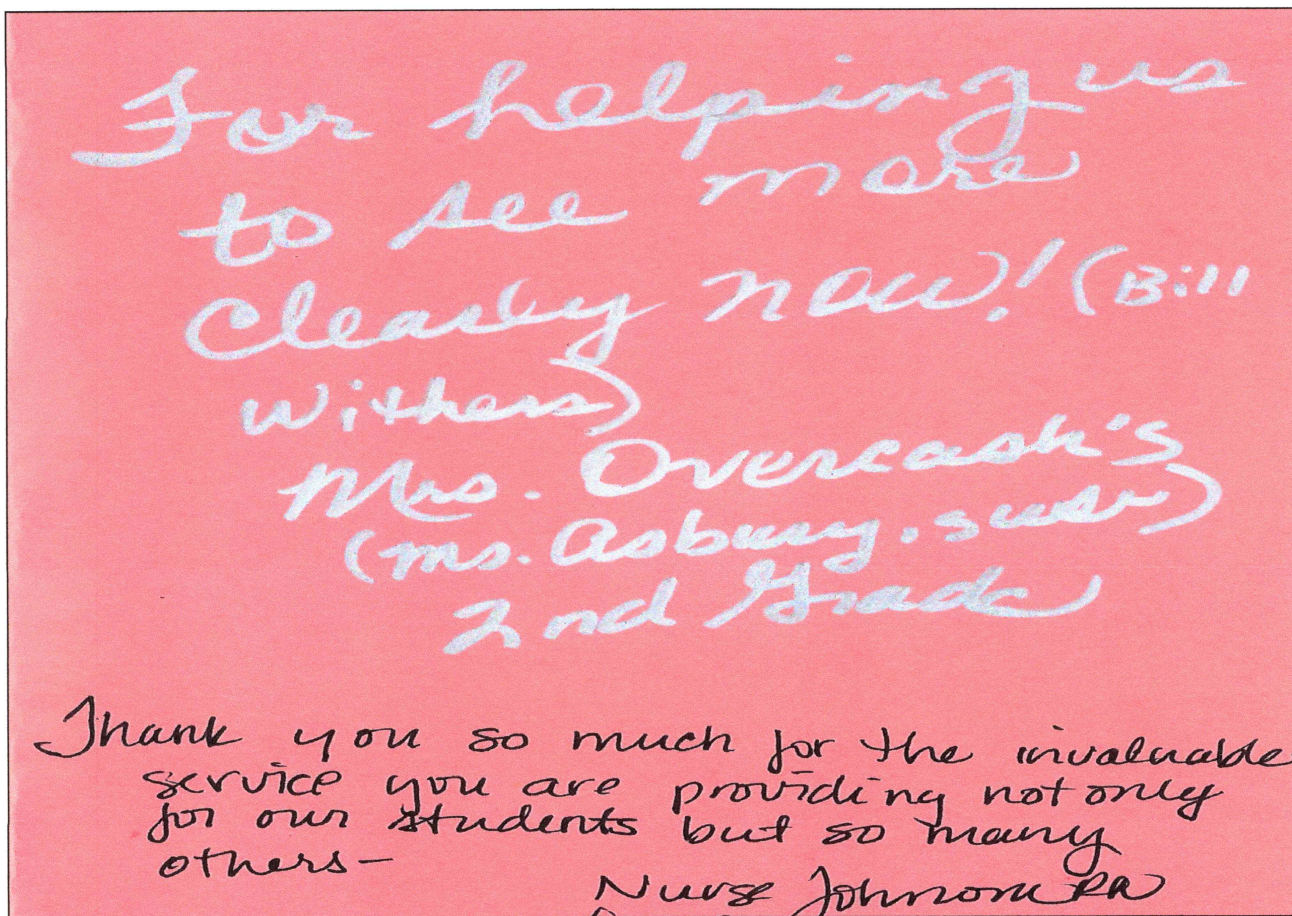 For helping us
to see more
Clearly now! (Bill
Withers)
Mrs. Overcash's
(Ms. Asbury,
2nd Grade
Thank you so much for the invaluable
service you are providing not only
for our students but so many
others-
Nurse Johnson RN